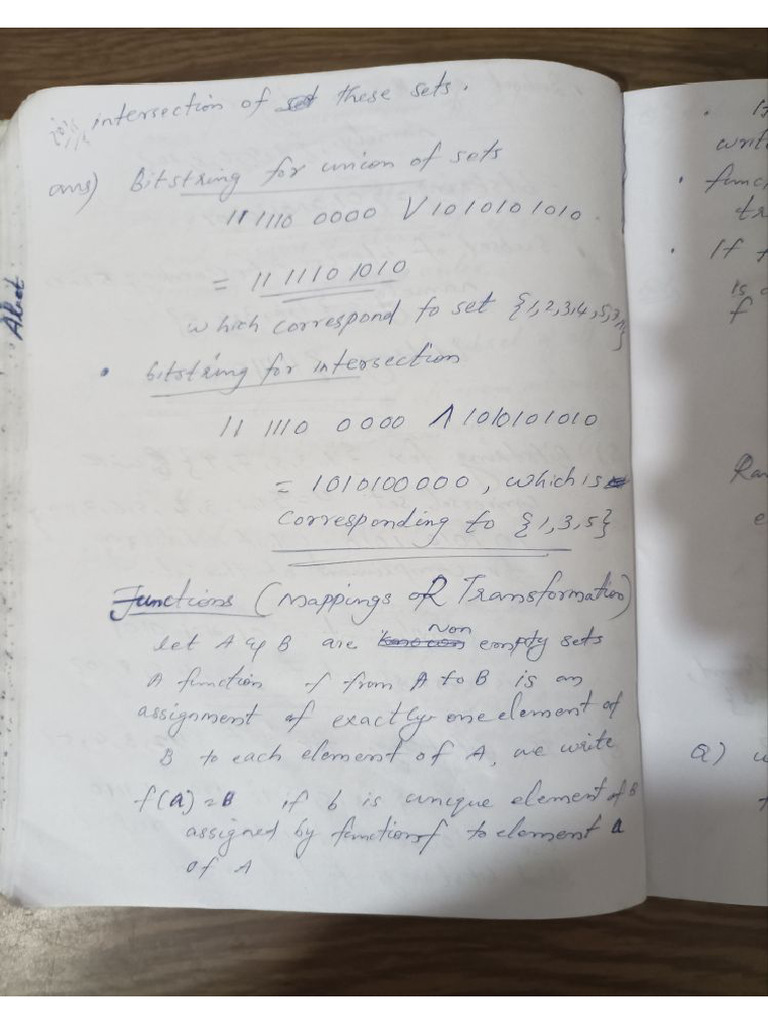 intersection of these sets.
ans) Bitstring for union of sets
11 1110 0000 V 1010101010
= 11 11101010
which correspond to set {1,2,3,4,5,7,9}
• bitstring for intersection
11 1110 0000 Λ 1010101010
= 1010100000, which is
corresponding to {1,3,5}
Functions (Mappings OR Transformation)
let A & B are Non empty sets
A function f from A to B is an
assignment of exactly one element of
B to each element of A, we write
f(a) = B if b is unique element of B
assigned by function f to element a
of A
Abet
• If
write
• func
tr
• If f
is
f
Ran
e
Q) w